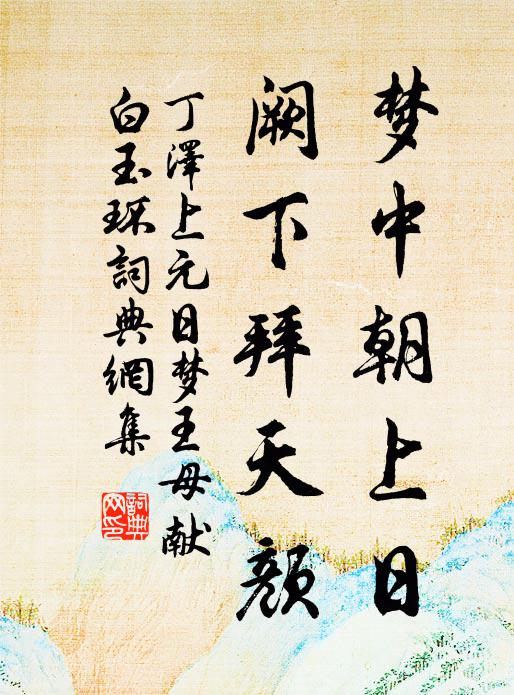 梦中朝上日
阙下拜天颜
丁澤上元日梦王母献
白玉环詞典網集
詞典
网印